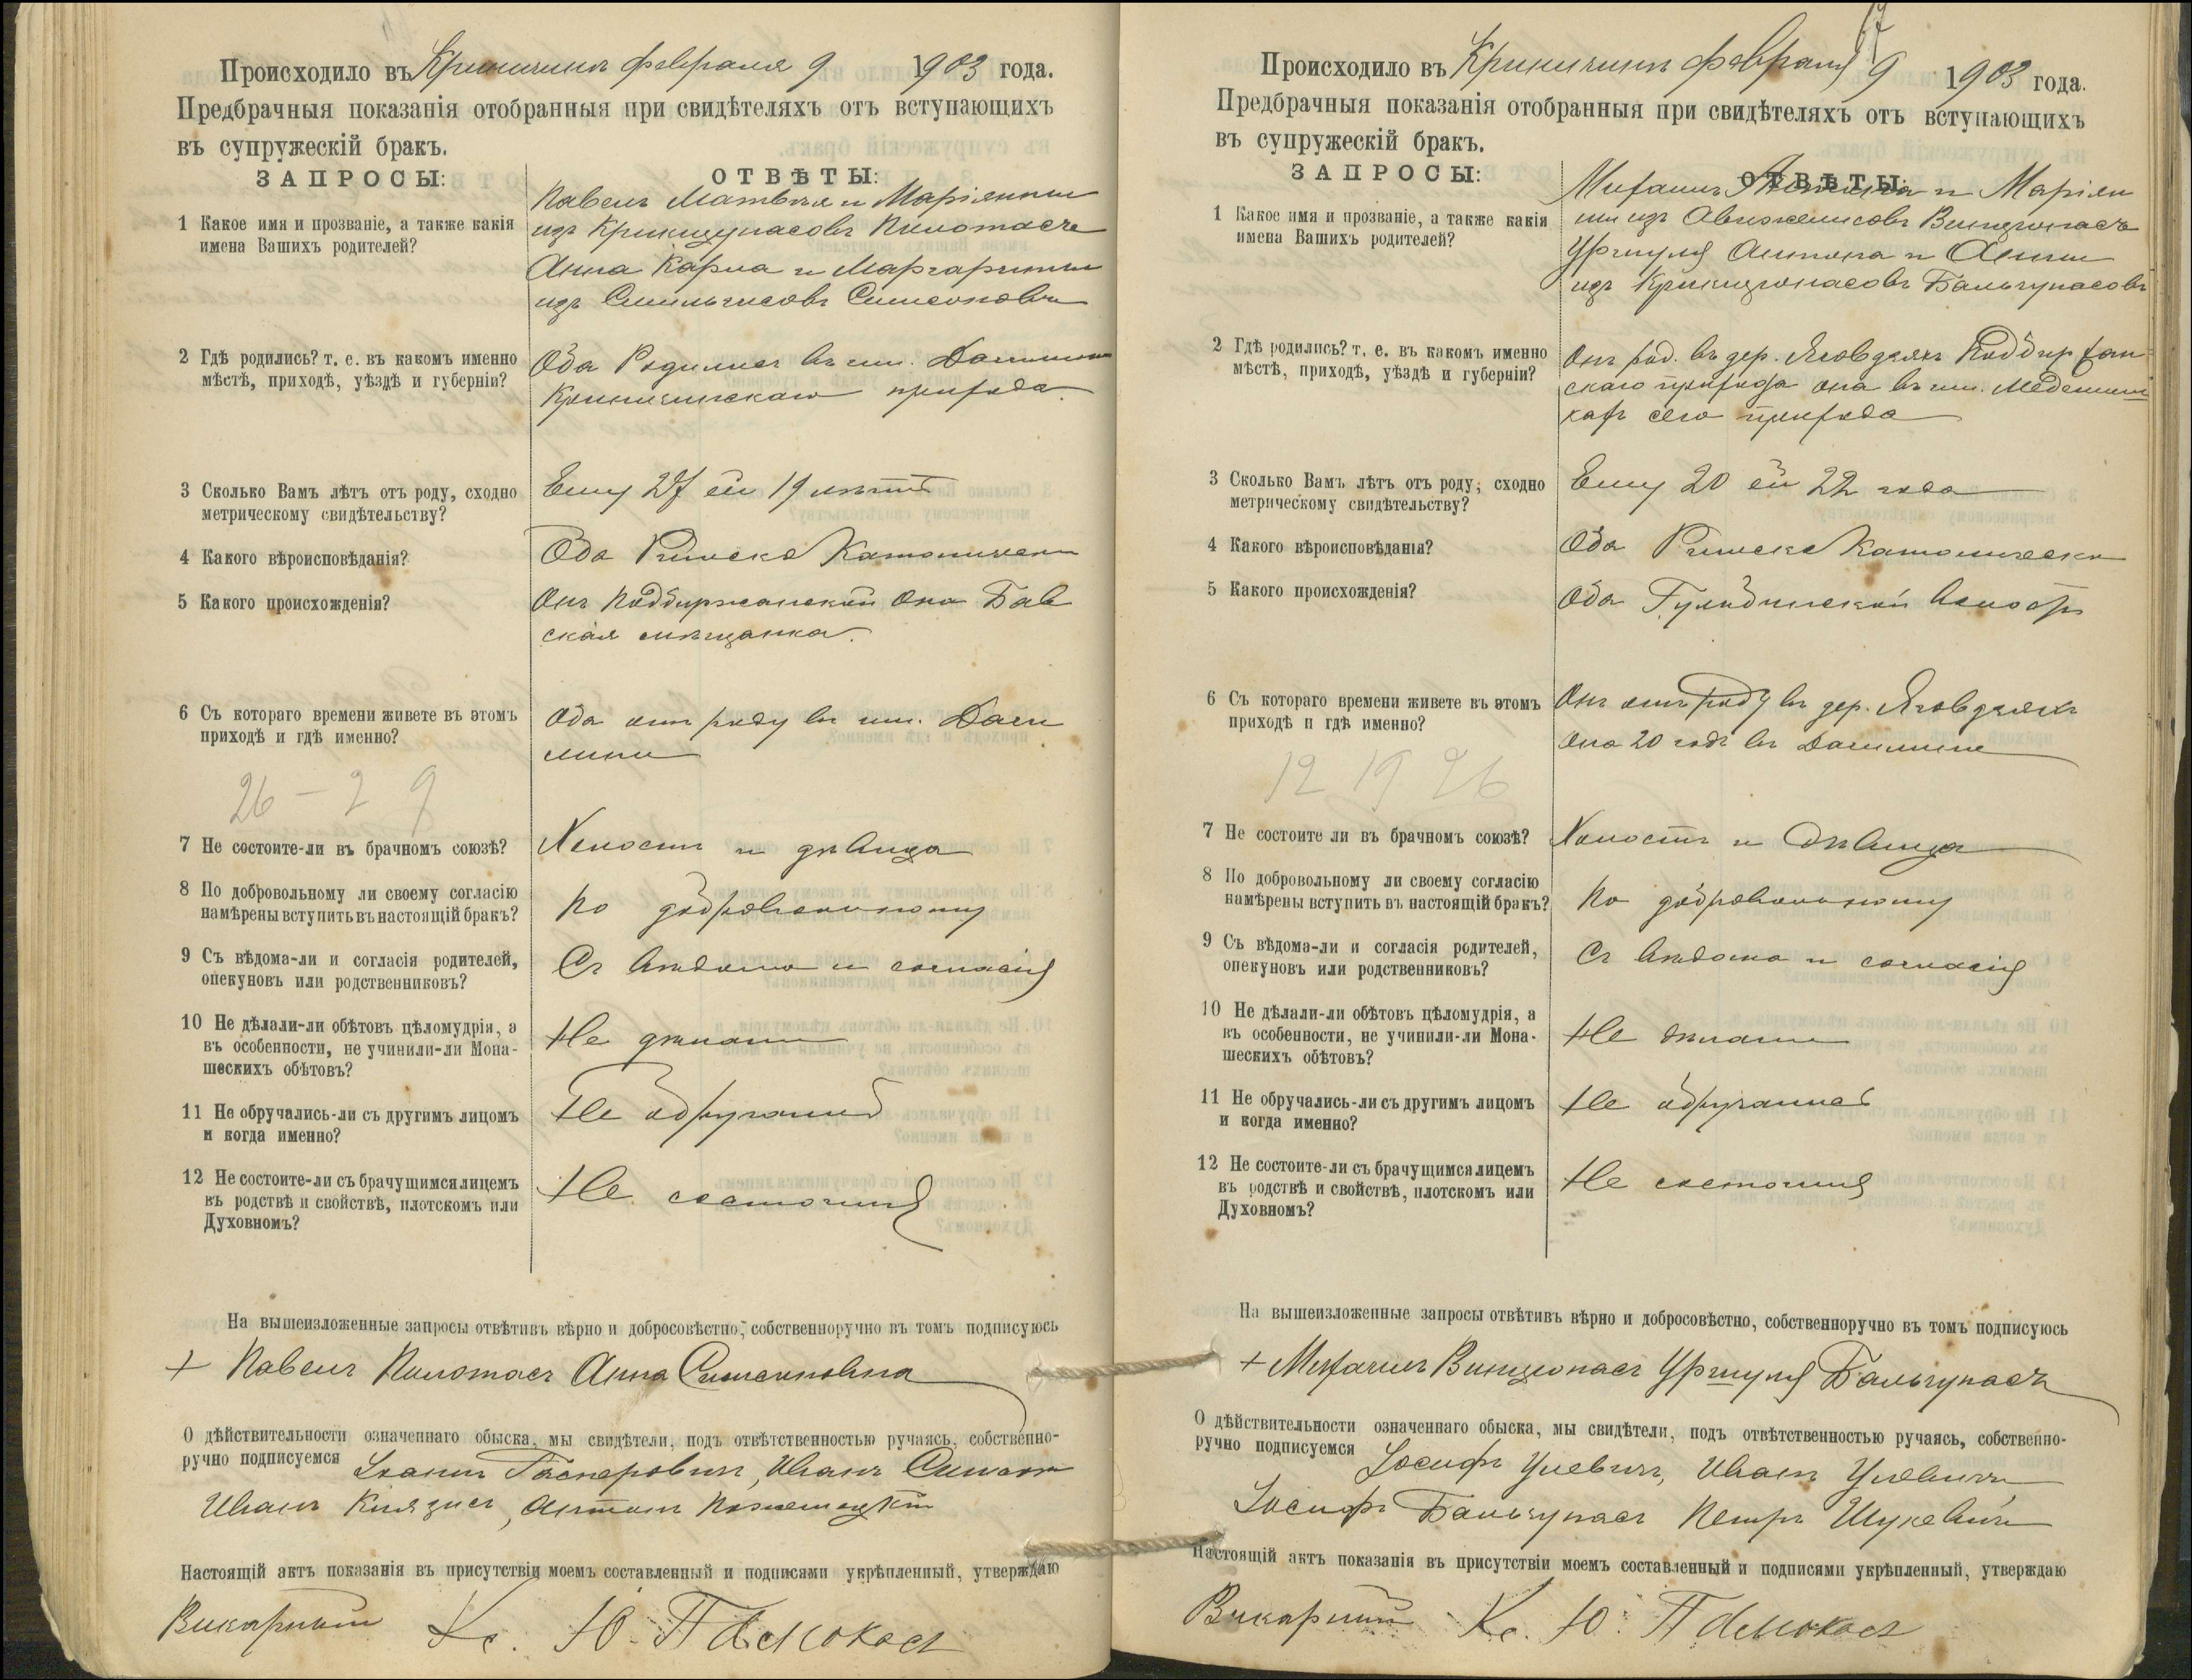 Происходило въ Криничинъ февраля 9 1903 года.
Предбрачныя показанія отобранныя при свидѣтеляхъ отъ вступающихъ
въ супружескій бракъ.
ЗАПРОСЫ: ОТВѢТЫ:
1 Какое имя и прозваніе, а также какія
имена Вашихъ родителей?
Павелъ Матвѣя и Маріянны
изъ
Анна Карла и Маргариты
изъ
2 Гдѣ родились? т. е. въ какомъ именно
мѣстѣ, приходѣ, уѣздѣ и губерніи?
Оба Родились въ им.
прихода
3 Сколько Вамъ лѣтъ отъ роду, сходно
метрическому свидѣтельству?
Ему 27 ей 19 лѣтъ
4 Какого вѣроисповѣданія?
Оба Римско Католическ
5 Какого происхожденія?
Онъ Поддиржанскій Она Бав
ская мѣщанка.
6 Съ котораго времени живете въ этомъ
приходѣ и гдѣ именно?
Оба отъ роду въ им.
26 – 2 9
7 Не состоите-ли въ брачномъ союзѣ?
Холостъ и дѣвица
8 По добровольному ли своему согласію
намѣрены вступить въ настоящій бракъ?
По добровольному
9 Съ вѣдома-ли и согласія родителей,
опекуновъ или родственниковъ?
Съ вѣдома и согласія
10 Не дѣлали-ли обѣтовъ цѣломудрія, а
въ особенности, не учинили-ли Мона-
шескихъ обѣтовъ?
Не дѣлали
11 Не обручались-ли съ другимъ лицомъ
и когда именно?
Не обручались
12 Не состоите-ли съ брачущимся лицемъ
въ родствѣ и свойствѣ, плотскомъ или
Духовномъ?
Не состоимъ
На вышеизложенные запросы отвѣтивъ вѣрно и добросовѣстно, собственноручно въ томъ подписуюсь
+ Павелъ Пилотасъ Анна Симоновна
О дѣйствительности означеннаго обыска, мы свидѣтели, подъ отвѣтственностью ручаясь, собственно-
ручно подписуемся Гасперовичъ, Иванъ
Иванъ Князисъ, Антонъ
Настоящій актъ показанія въ присутствіи моемъ составленный и подписями укрѣпленный, утверждаю
Викарный Кс. Ю.
Происходило въ Криничинъ февраля 9 1903 года.
Предбрачныя показанія отобранныя при свидѣтеляхъ отъ вступающихъ
въ супружескій бракъ.
ЗАПРОСЫ: ОТВѢТЫ:
1 Какое имя и прозваніе, а также какія
имена Вашихъ родителей?
Михаилъ и Маріян
ны изъ
Уршуля Антона и Анны
изъ Бальчунасовъ
2 Гдѣ родились? т. е. въ какомъ именно
мѣстѣ, приходѣ, уѣздѣ и губерніи?
Онъ род. въ дер.
скаго прихода она въ им.
сего прихода
3 Сколько Вамъ лѣтъ отъ роду, сходно
метрическому свидѣтельству?
Ему 20 ей 22 года
4 Какого вѣроисповѣданія?
Оба Римско Католическ
5 Какого происхожденія?
Оба волости
6 Съ котораго времени живете въ этомъ
приходѣ и гдѣ именно?
Онъ отъ роду въ дер.
она 20 годъ въ
12 19 26
7 Не состоите ли въ брачномъ союзѣ?
Холостъ и дѣвица
8 По добровольному ли своему согласію
намѣрены вступить въ настоящій бракъ?
По добровольному
9 Съ вѣдома-ли и согласія родителей,
опекуновъ или родственниковъ?
Съ вѣдома и согласія
10 Не дѣлали-ли обѣтовъ цѣломудрія, а
въ особенности, не учинили-ли Мона-
шескихъ обѣтовъ?
Не дѣлали
11 Не обручались-ли съ другимъ лицомъ
и когда именно?
Не обручались
12 Не состоите-ли съ брачущимся лицемъ
въ родствѣ и свойствѣ, плотскомъ или
Духовномъ?
Не состоимъ
На вышеизложенные запросы отвѣтивъ вѣрно и добросовѣстно, собственноручно въ томъ подписуюсь
+ Михаилъ Винцюнасъ Уршуля Бальчунасъ
О дѣйствительности означеннаго обыска, мы свидѣтели, подъ отвѣтственностью ручаясь, собственно-
ручно подписуемся Іосифъ Улевичъ, Иванъ Улевичъ
Іосифъ Бальчунасъ Петръ Шукевичъ
Настоящій актъ показанія въ присутствіи моемъ составленный и подписями укрѣпленный, утверждаю
Викарный Кс. Ю.